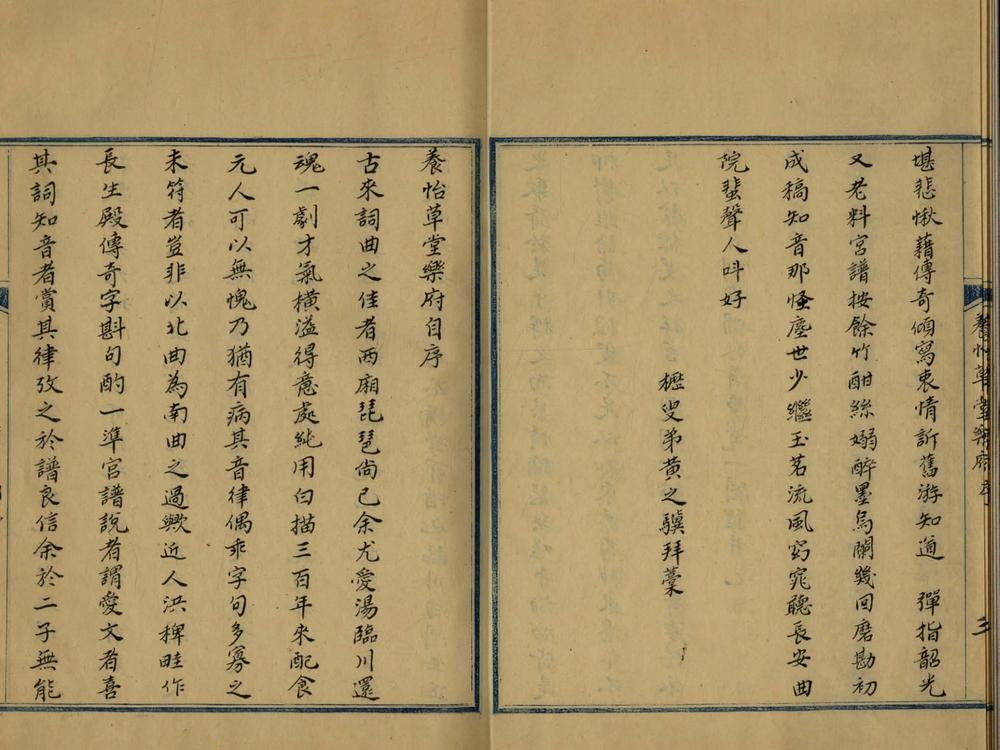 養怡草堂樂府序
三
堪悲愀藉傳奇傾寫衷情訴舊游知道　彈指韶光
又老料宮譜按餘竹酣絲嫋醉墨烏闌幾回磨勘初
成稿知音那怪塵世少繼玉茗流風窈窕聽長安曲
院蜚聲人呌好
櫪叟弟黃之驥拜藁
養怡草堂樂府自序
古來詞曲之佳者西廂琵琶尙已余尤愛湯臨川還
魂一劇才氣橫溢得意處純用白描三百年來配食
元人可以無愧乃猶有病其音律偶乖字句多寡之
未符者豈非以北曲為南曲之過歟近人洪稗畦作
長生殿傳奇字斟句酌一準宮譜說者謂愛文者喜
其詞知音者賞其律攷之於譜良信余於二子無能